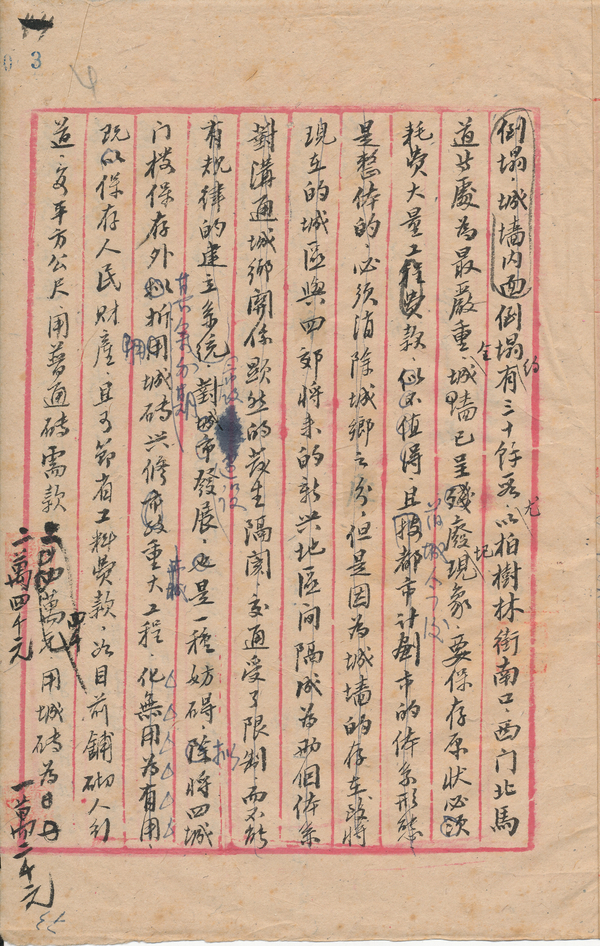 03
倒塌、城墙内面倒塌有三十餘処、以柏樹林街南口、西门北馬
道等處為最嚴重、城墻已呈殘廢現象、要保存原状必須
耗费大量工程费款似不值得、且按都市计劃市的体系形態
是整体的、必须消除城鄉之分、但是因为城墙的存在致將
現在的城區與四郊将来的新兴地區间隔成为两個体系
對溝通城鄉関係顯然的發生隔閡、交通受了限制、而不能
有规律的建立系统、對城市發展、也是一種妨碍、除將四城
门楼保存外拟拆用城砖兴修市政重大工程、化無用为有用
既以保存人民财產、且可節省工料费款、如目前鋪砌人行
道、每平方公尺用普通砖需款
二萬四千元
用城砖为
一萬二千元